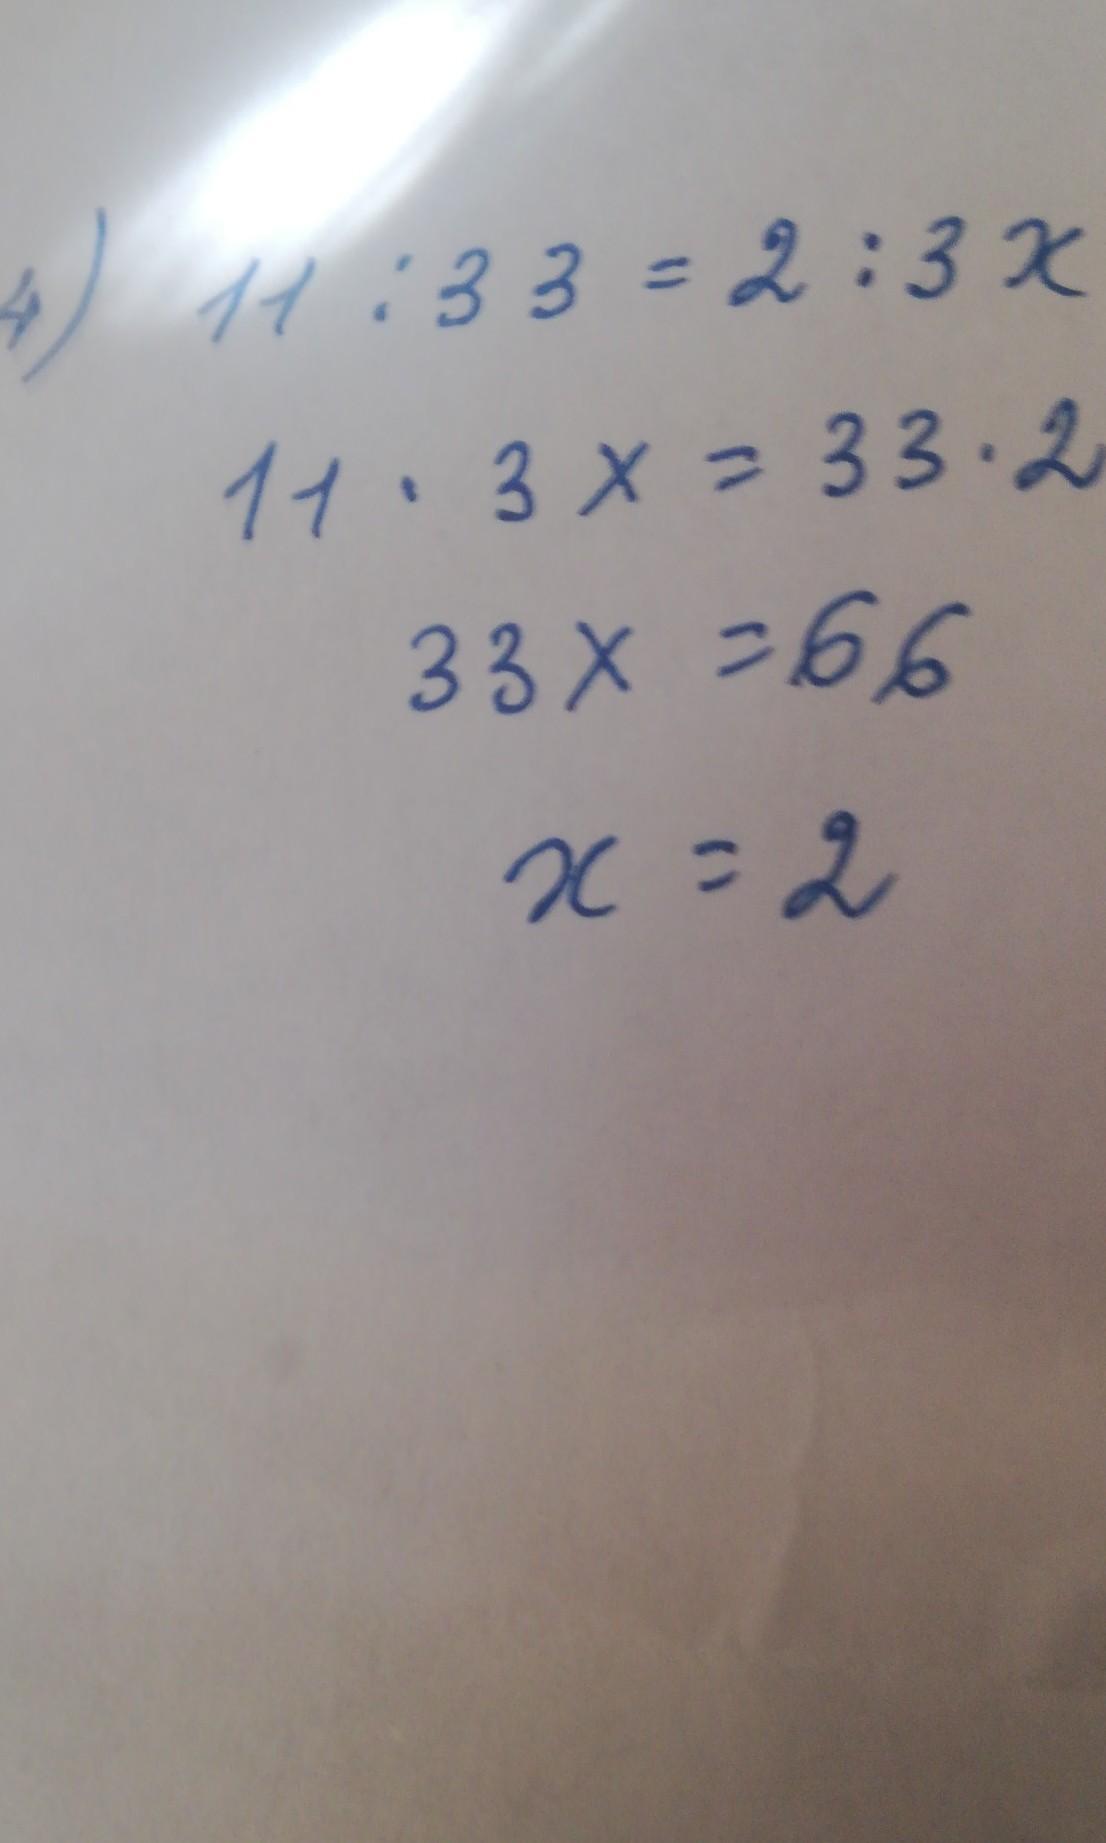 4) 11 : 33 = 2 : 3x
11 · 3x = 33 · 2
33x = 66
x = 2